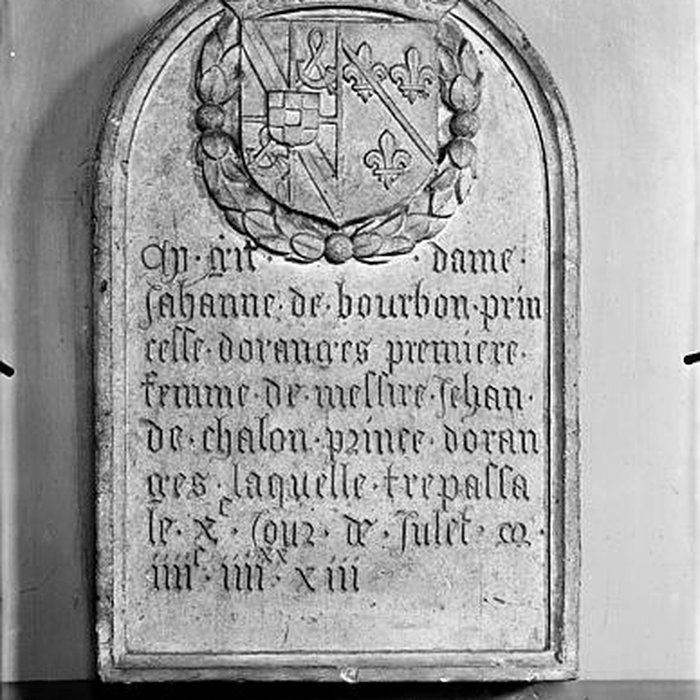 Cy · git · dame ·
Jahanne · de · bourbon · prin
cesse · doranges premiere ·
femme · de · messire · Jehan ·
de · chalon · prince · doran
ges · laquelle · trepassa
le · xᵉ · Jour · de · Julet · m ·
iiiiᶜ · iiiiˣˣ · xiii